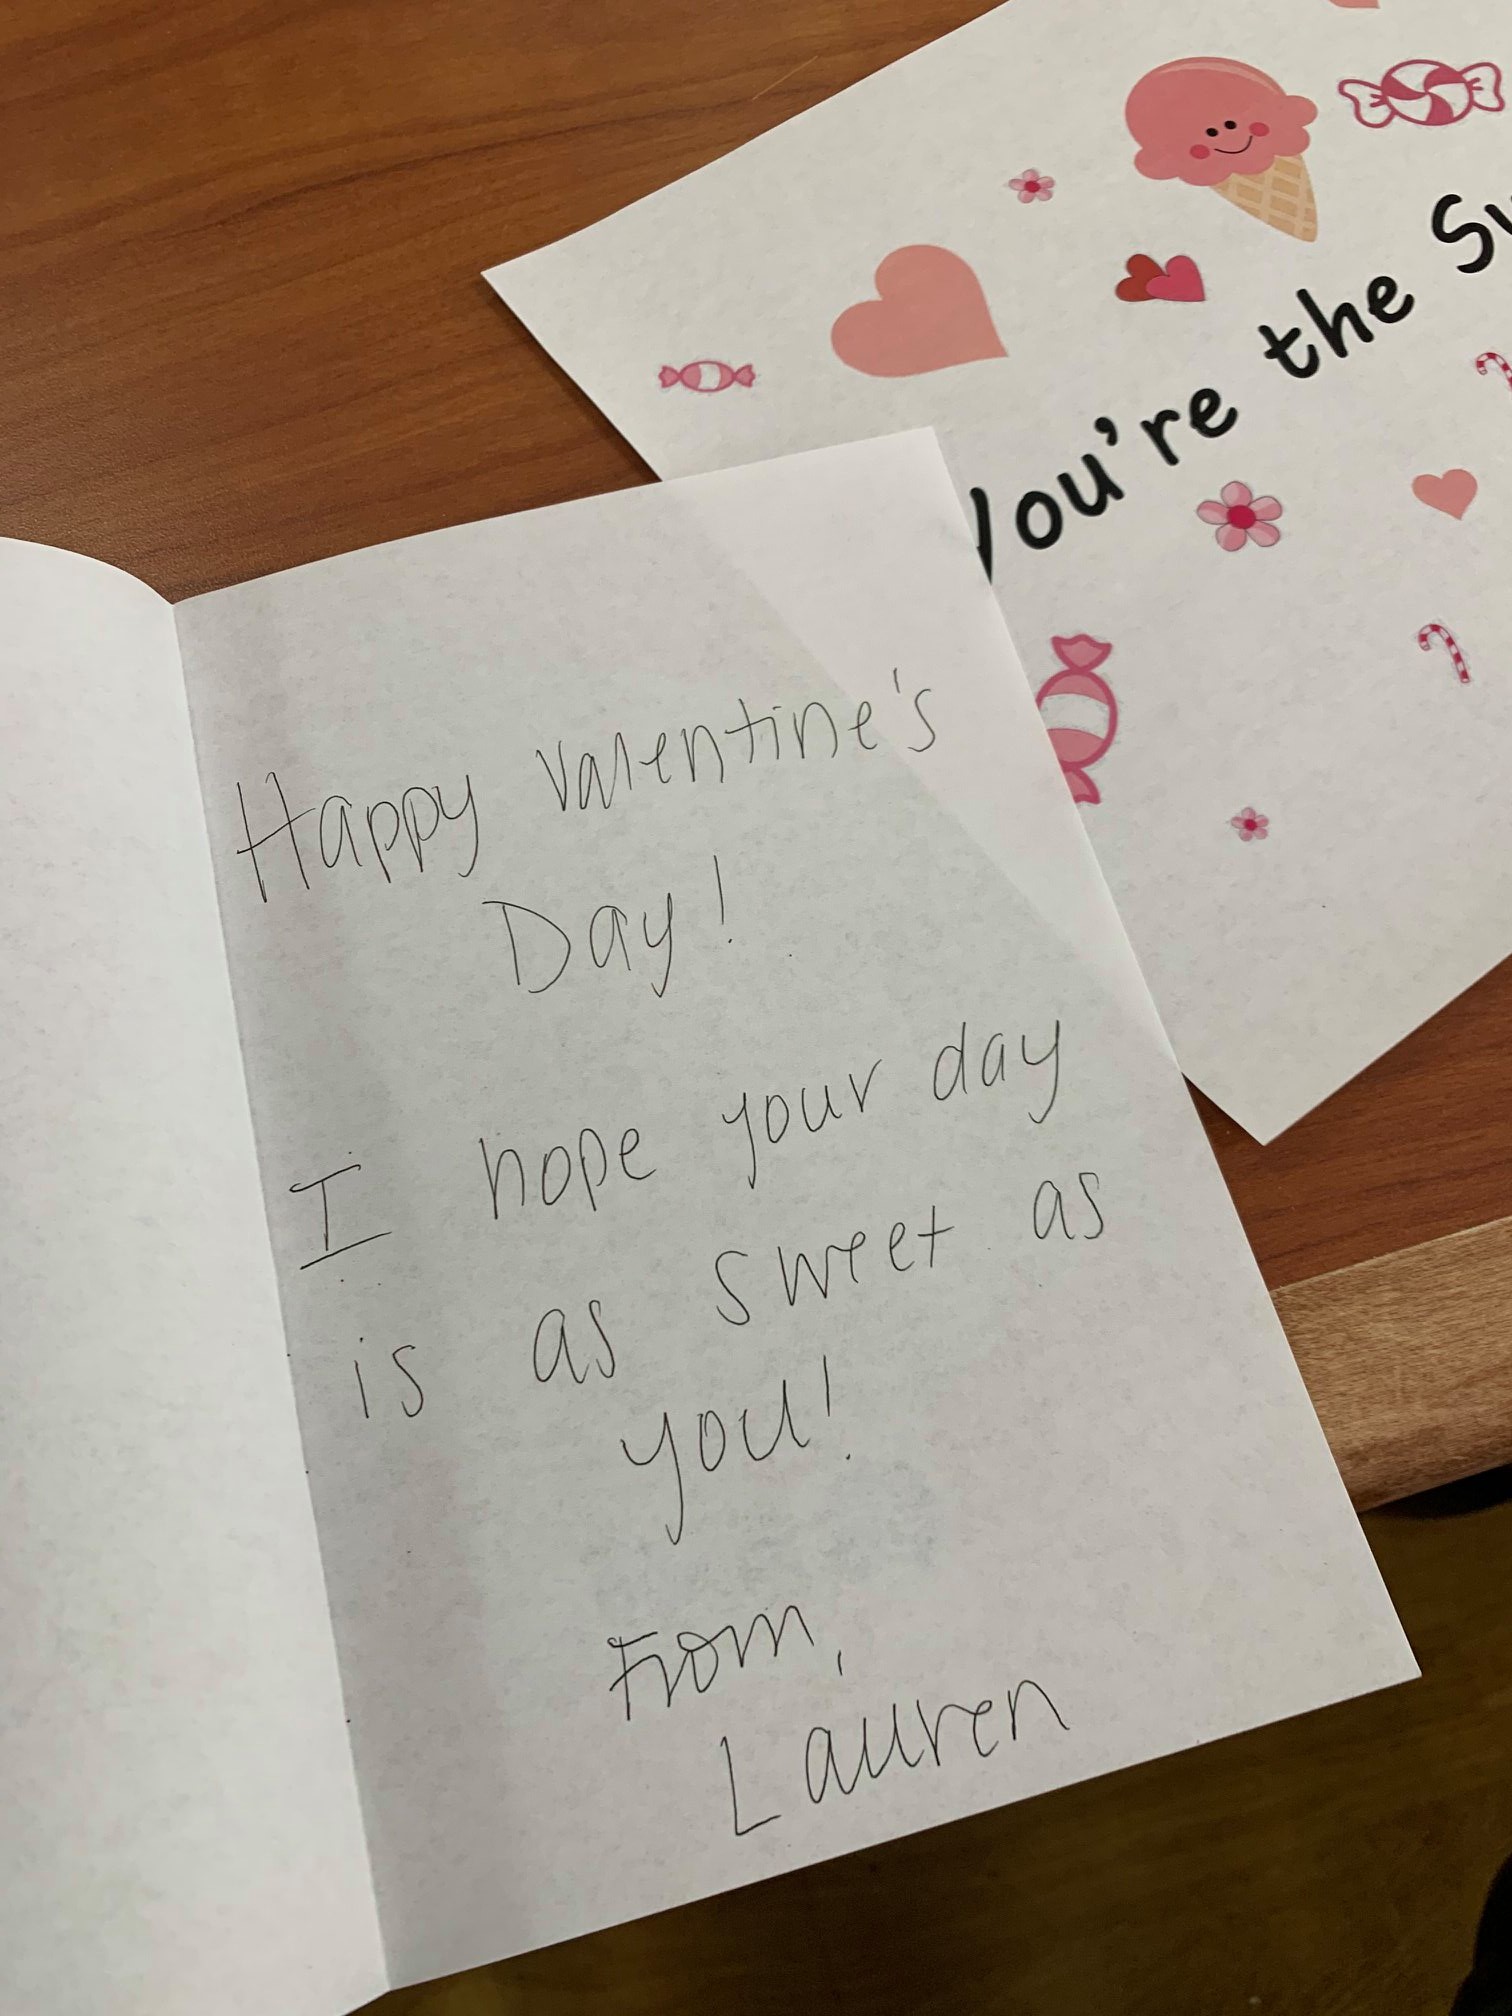 You're the
Happy Valentine's
Day!
I hope your day
is as sweet as
you!
From,
Lauren